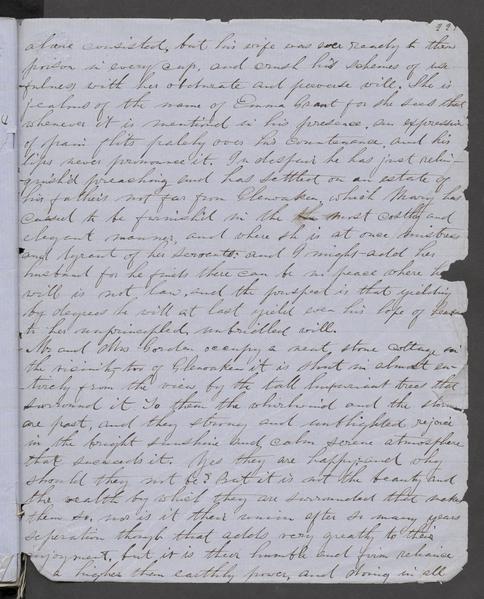 221
alone consisted, but his wife was ever ready to throw
poison in every cup, and crush his schemes of use
fulness with her obdurate and perverse will. She is
jealous of the name of Emma Grant for she sees that
whenever it is mentiond in his presence, an expression
of pain flits palely over his countenance, and his
lips never pronounce it. In despair he has just relin-
quishd preaching and has settled on an estate of
his fathers not far from Glenoaken, which Mary has
caused to be furnish'd in the most costly and
elegant manner, and where she is at once mistress
and tyrant of her servants: and I might add her
husband for he finds there can be no peace where her
will is not law, and the prospect is that yielding
by degrees he will at last yield even his hope of
to her unprincipled, unbridled will.
Mr. and Mrs Gordon occupy a neat stone cottage in
the vicinity too of Glenoaken it is shut in almost en-
tirely from the view by the tall luxuriant trees that
surround it. To them the whirlwind and the storm
are past, and they strong and unblighted rejoice
in the bright sunshine and calm serene atmosphere
that succeeds it. Yes they are happy and why
should they not be? But it is not the beauty and
the wealth by which they are surrounded that makes
them so, nor is it their union after so many years
seperation though that adds very greatly to their
enjoyment, but it is their humble and firm reliance
a higher than earthly power, and doing in all